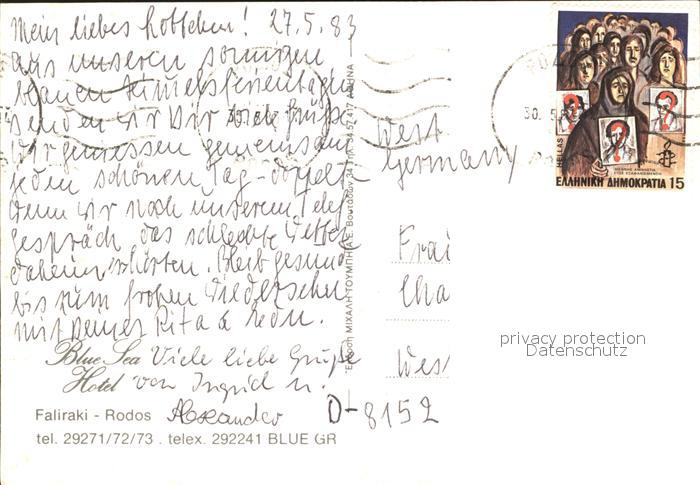 Mein liebes Lottchen! 27.5.83
aus unseren sonnigen
blauen Himmelsferientagen
senden wir Dir viele Grüße
Wir geniessen gemeinsam
jeden schönen Tag - doppelt
wenn wir nach unserem Tele
gespräch das schlechte Wetter
daheim hörten. Bleib gesund
bis zum frohen Wiedersehen
mit Deiner Rita &
Blue Sea Hotel
Viele liebe Grüße
von Ingrid u.
Alexander
Faliraki - Rodos
tel. 29271/72/73 . telex. 292241 BLUE GR
ΜΙΧΑΛΗ ΤΟΥΜΠΗ Α.Ε.
West
Germany
Frau
Cha
Wes
D-8152
30.5
ΕΛΛΗΝΙΚΗ ΔΗΜΟΚΡΑΤΙΑ 15
privacy protection
Datenschutz